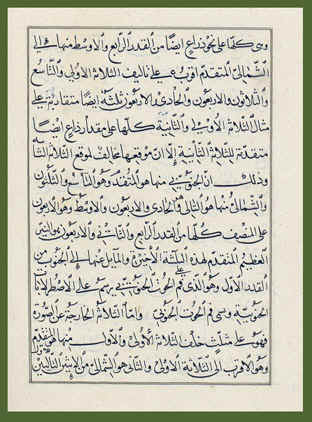 وهي كلها على نحو ذراع ايضا من القدر الرابع والاوسط منها هو الي
الشمالي المتقدم اقرب على تاليف الثلاثة الاولي والتاسع
والثلاثون والاربعون والحادي والاربعون ثلثة ايضا متقاربة على
مثال الثلاثة الاولي والثانية كلها على مقدار ذراع ايضا
متقدمة للثلاثة الثانية الا ان موقعها مخالف لموقع الثلاثة
وذلك ان الجنوبي منها هو المتقدم وهو التاسع والثلثون
والشمالي منها هو التالي والحادي والاربعون والاوسط وهو الاربعون
على النصف كلها من القدر الرابع والثاني والاربعون هو النير
العظيم المتقدم لهذه الثلثة الاخيرة والمايل عنها الي الجنوب من
القدر الاول وهو الذي في فم الحوت الجنوبي يرسم على الاصطرلابات
الجنوبية ويسمى فم الحوت الجنوبي واما الثلاثة الخارجة عن الصورة
فهي على مثلث خلف الثلاثة الاولى والاول منها هو المتقدم
وهو الاقرب الى الثلاثة الاولى والثاني هو الشمالي من الاثنين التاليين